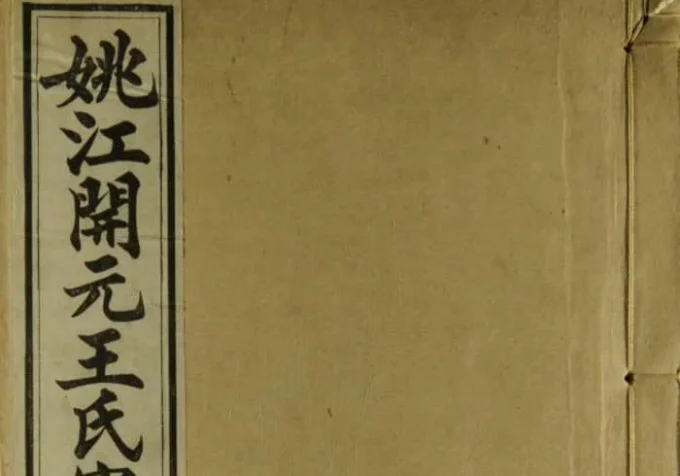 姚江開元王氏